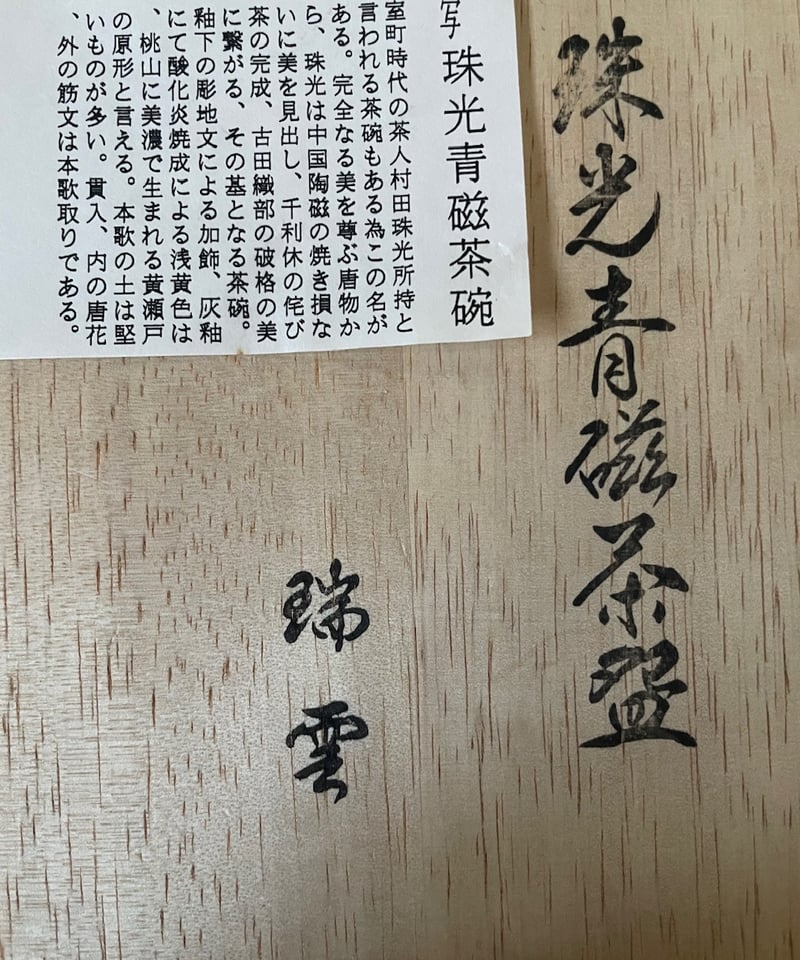 写 珠光青磁茶碗
室町時代の茶人村田珠光所持と
言われる茶碗もある為この名が
ある。完全なる美を尊ぶ唐物か
ら、珠光は中国陶磁の焼き損な
いに美を見出し、千利休の侘び
茶の完成、古田織部の破格の美
に繋がる、その基となる茶碗。
釉下の彫地文による加飾、灰釉
にて酸化炎焼成による浅黄色は
、桃山に美濃で生まれる黄瀬戸
の原形と言える。本歌の土は堅
いものが多い。貫入、内の唐花
、外の筋文は本歌取りである。
珠光青磁茶盌
瑞雲